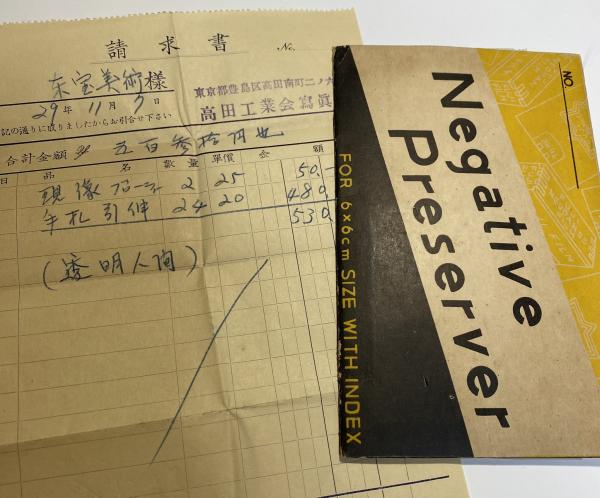 請求書 No.
東宝美術様
29年11月7日
東京都豊島区高田南町二ノ六
高田工業会寫眞
記の通りに成りましたからお引合せ下さい
合計金額 五百参拾円也
品名 數量 單價 金額
現像 2 25 50.-
手札引伸 24 20 480
530
(透明人间)
Negative
Preserver
FOR 6×6cm SIZE WITH INDEX
NO.
FILM